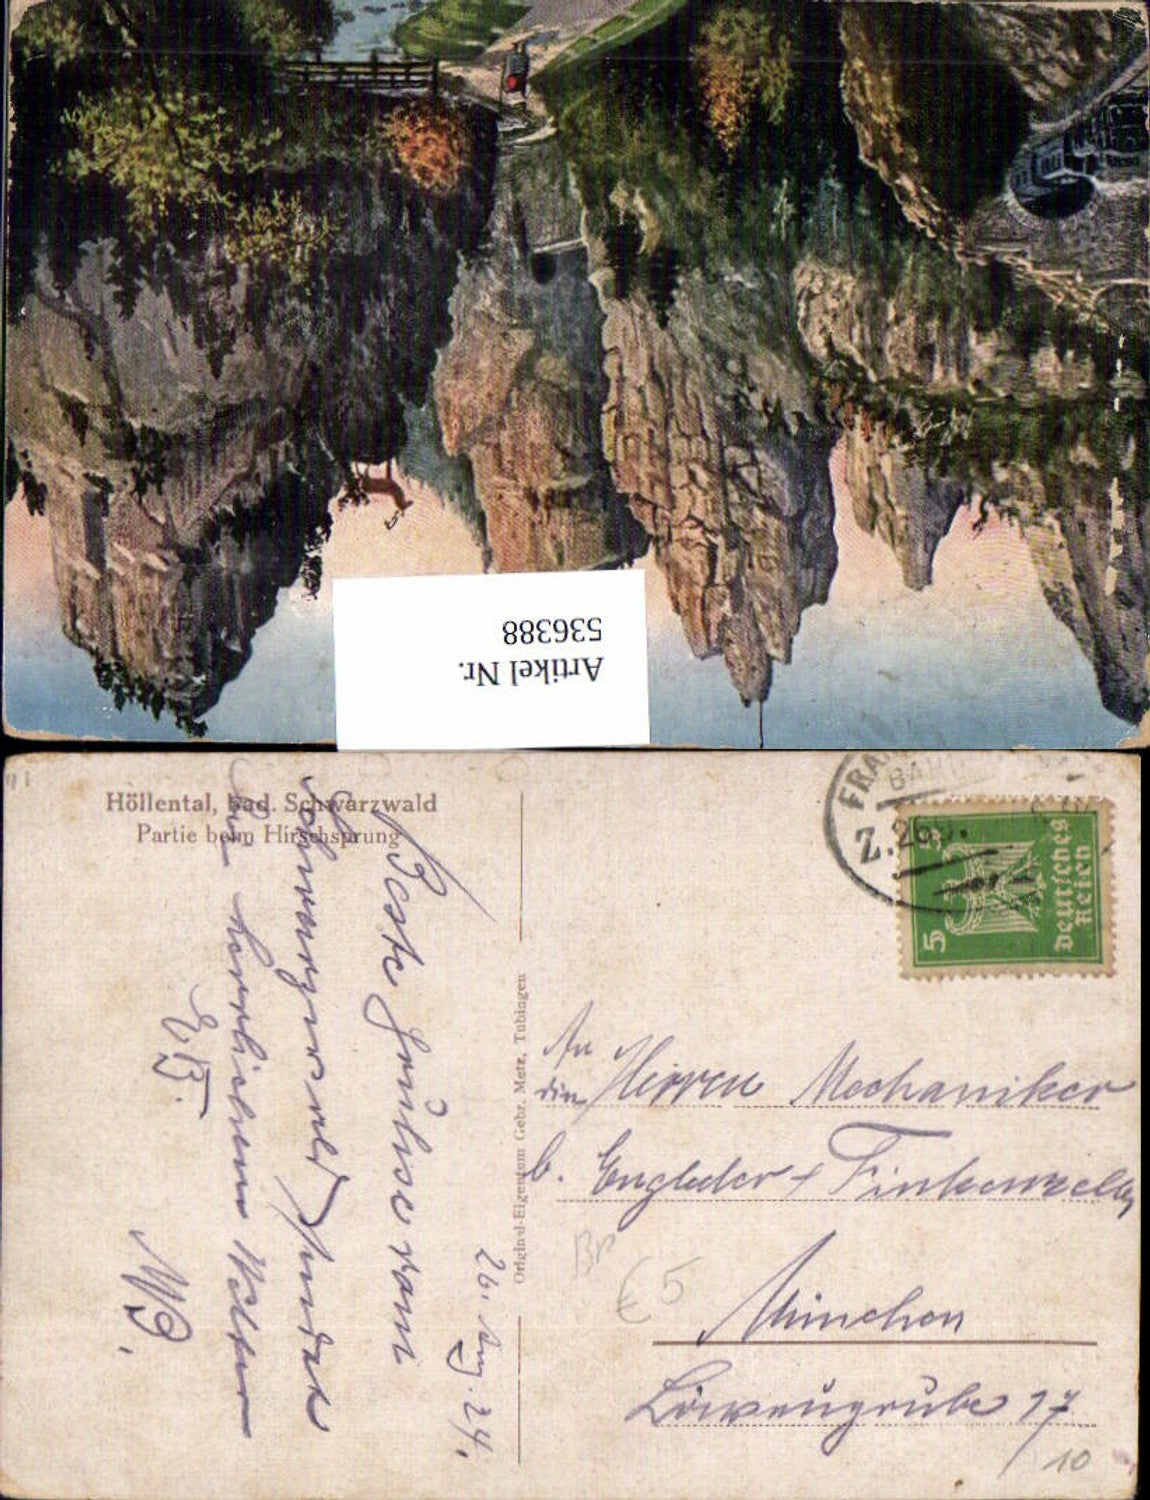 Artikel Nr.
536388
Höllental, bad. Schwarzwald
Partie beim Hirschsprung
26. Aug. 24.
Beste Grüße vom
Schwarzwald sendet
bei herrlichem Wetter
M B.
Original-Eigentum Gebr. Metz, Tübingen
FRA
Z. 26
5 5
Deutsches
Reich
An
die Herren Mechaniker
b. Engleder + Finkenzeller
München
Löwengrube 17
BP
€ 5
10